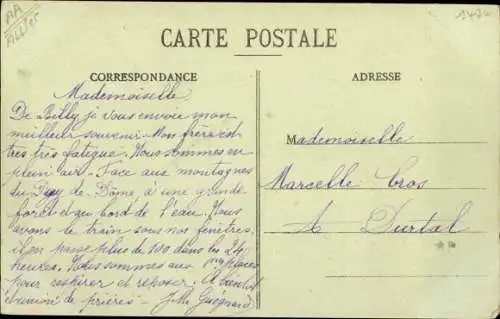 AA
ALLIER
1474
CARTE POSTALE
CORRESPONDANCE
ADRESSE
Mademoiselle
De Billy je vous envoie mon
meilleur souvenir. Mon frère est
très très fatigué. Nous sommes en
plein air. Face aux montagnes
du Puy de Dôme à une grande
forêt et au bord de l'eau. Nous
avons le train sous nos fenêtres,
il en passe plus de 100 dans les 24
heures. Nous sommes aux 1res places
pour respirer et reposer. A bientôt
et union de prières - J. M. Guégnard
Mademoiselle
Marcelle Cros
A Durtal